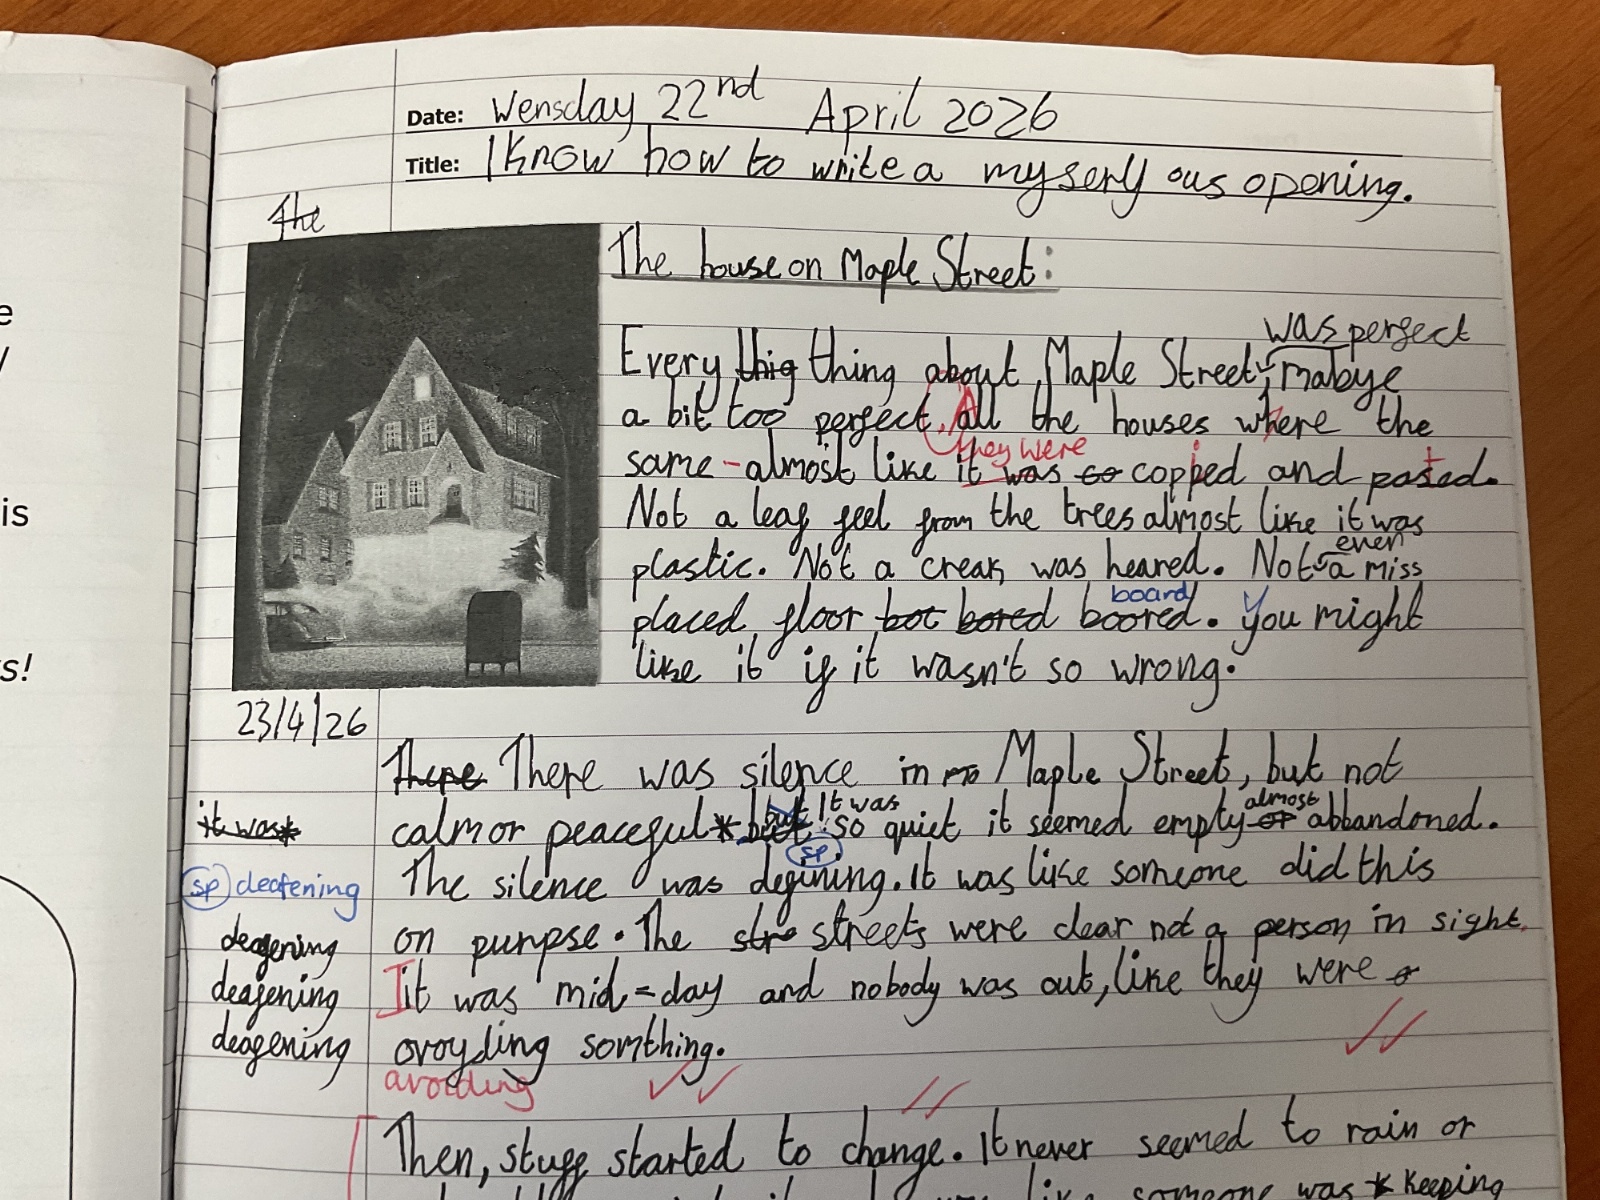 e
/
is
s!
Date: Wensday 22nd April 2026
Title: I Know how to write a myseryous opening.
The
The house on Maple Street:
was perfect
Every thig thing about Maple Street, mabye
a bit too perfect. All the houses where the
they were
same - almost like it was so copied and pasted.
Not a leaf feel from the trees almost like it was
even
plastic. Not a creak was heared. Not a miss
board
placed floor bot bored boored. You might
like it if it wasn't so wrong.
23/4/26
There There was silence in Maple Street, but not
it was almost
it was* calm or peaceful* but so quiet it seemed empty or abbandoned.
sp
sp deafening
The silence was defining. It was like someone did this
deafening
on purpse. The stre streets were clear not a person in sight.
deafening
It was mid=day and nobody was out, like they were
deafening
ovoyding somthing.
avoiding
Then, stuff started to change. It never seemed to rain or
like someone was * Keeping